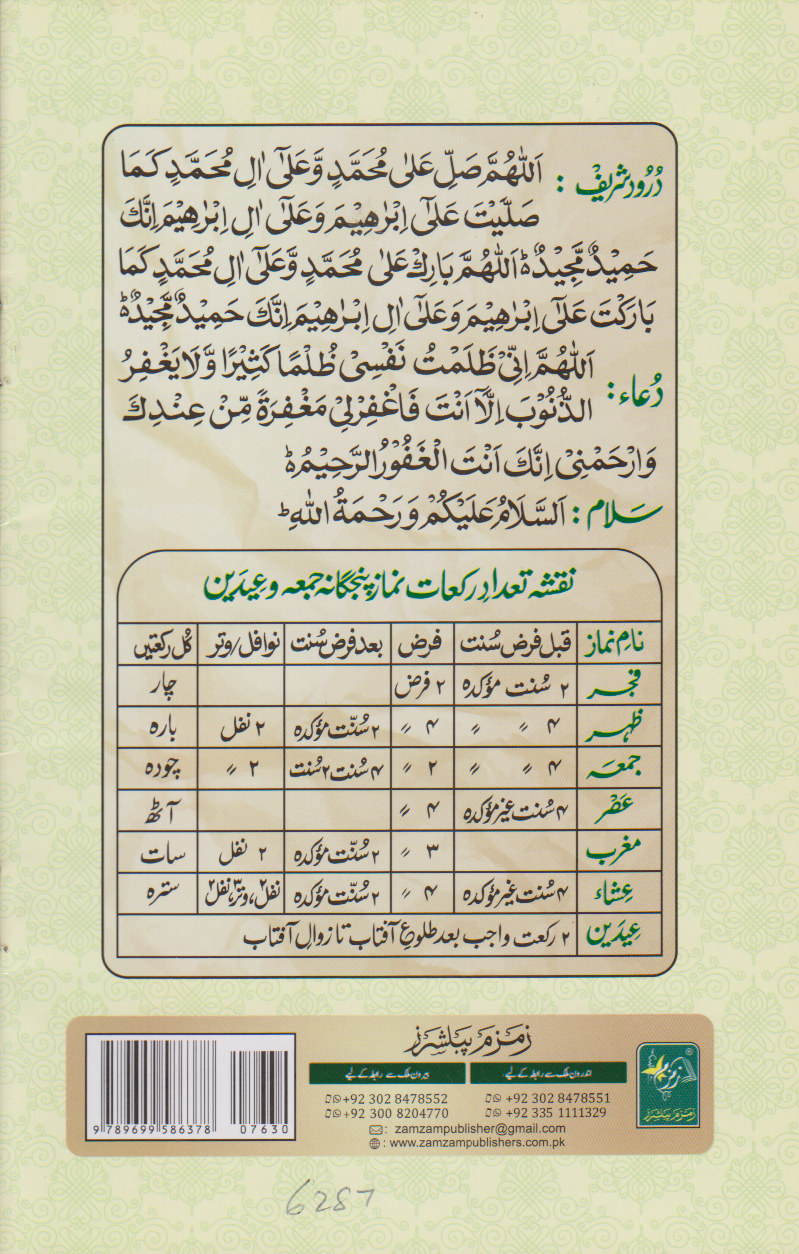 دُرُود شریف: اَللّٰهُمَّ صَلِّ عَلٰى مُحَمَّدٍ وَّعَلٰٓى اٰلِ مُحَمَّدٍ كَمَا
صَلَّيْتَ عَلٰٓى اِبْرٰهِيْمَ وَعَلٰٓى اٰلِ اِبْرٰهِيْمَ اِنَّكَ
حَمِيْدٌ مَّجِيْدٌ ؕ اَللّٰهُمَّ بَارِكْ عَلٰى مُحَمَّدٍ وَّعَلٰٓى اٰلِ مُحَمَّدٍ كَمَا
بَارَكْتَ عَلٰٓى اِبْرٰهِيْمَ وَعَلٰٓى اٰلِ اِبْرٰهِيْمَ اِنَّكَ حَمِيْدٌ مَّجِيْدٌ ؕ
دُعاء: اَللّٰهُمَّ اِنِّىْ ظَلَمْتُ نَفْسِىْ ظُلْمًا كَثِيْرًا وَّلَا يَغْفِرُ
الذُّنُوْبَ اِلَّآ اَنْتَ فَاغْفِرْلِىْ مَغْفِرَةً مِّنْ عِنْدِكَ
وَارْحَمْنِىْ اِنَّكَ اَنْتَ الْغَفُوْرُ الرَّحِيْمُ ؕ
سَلام: اَلسَّلَامُ عَلَيْكُمْ وَرَحْمَةُ اللّٰهِ ؕ
نقشہ تعدادِ رکعات نماز پنجگانہ جمعہ و عِیدَین
نامِ نماز قبل فرض سُنت فرض بعد فرض سُنت نوافل/وتر کُل رکعتیں
فجر ۲ سُنت مؤکدہ ۲ فرض چار
ظہر ۴ 〃 〃 ۴ 〃 ۲ سُنّت مؤکدہ ۲ نفل بارہ
جمعہ ۴ 〃 〃 ۲ 〃 ۴ سُنت ۲ سُنت ۲ 〃 چودہ
عَصْر ۴ سُنت غیر مؤکدہ ۴ 〃 آٹھ
مغرب ۳ 〃 ۲ سُنّت مؤکدہ ۲ نفل سات
عِشاء ۴ سُنت غیر مؤکدہ ۴ 〃 ۲ سُنّت مؤکدہ نفل۲، وتر۳، نفل۲ سترہ
عِیدَین ۲ رکعت واجب بعد طلوعِ آفتاب تا زوالِ آفتاب
زمزم پبلشرز
اندرون ملک سے رابطہ کے لیے بیرون ملک سے رابطہ کے لیے
+92 302 8478551 +92 302 8478552
+92 335 1111329 +92 300 8204770
: zamzampublisher@gmail.com
: www.zamzampublishers.com.pk
زمزم
زمزم پبلشرز
9 789699 586378 07630
6287